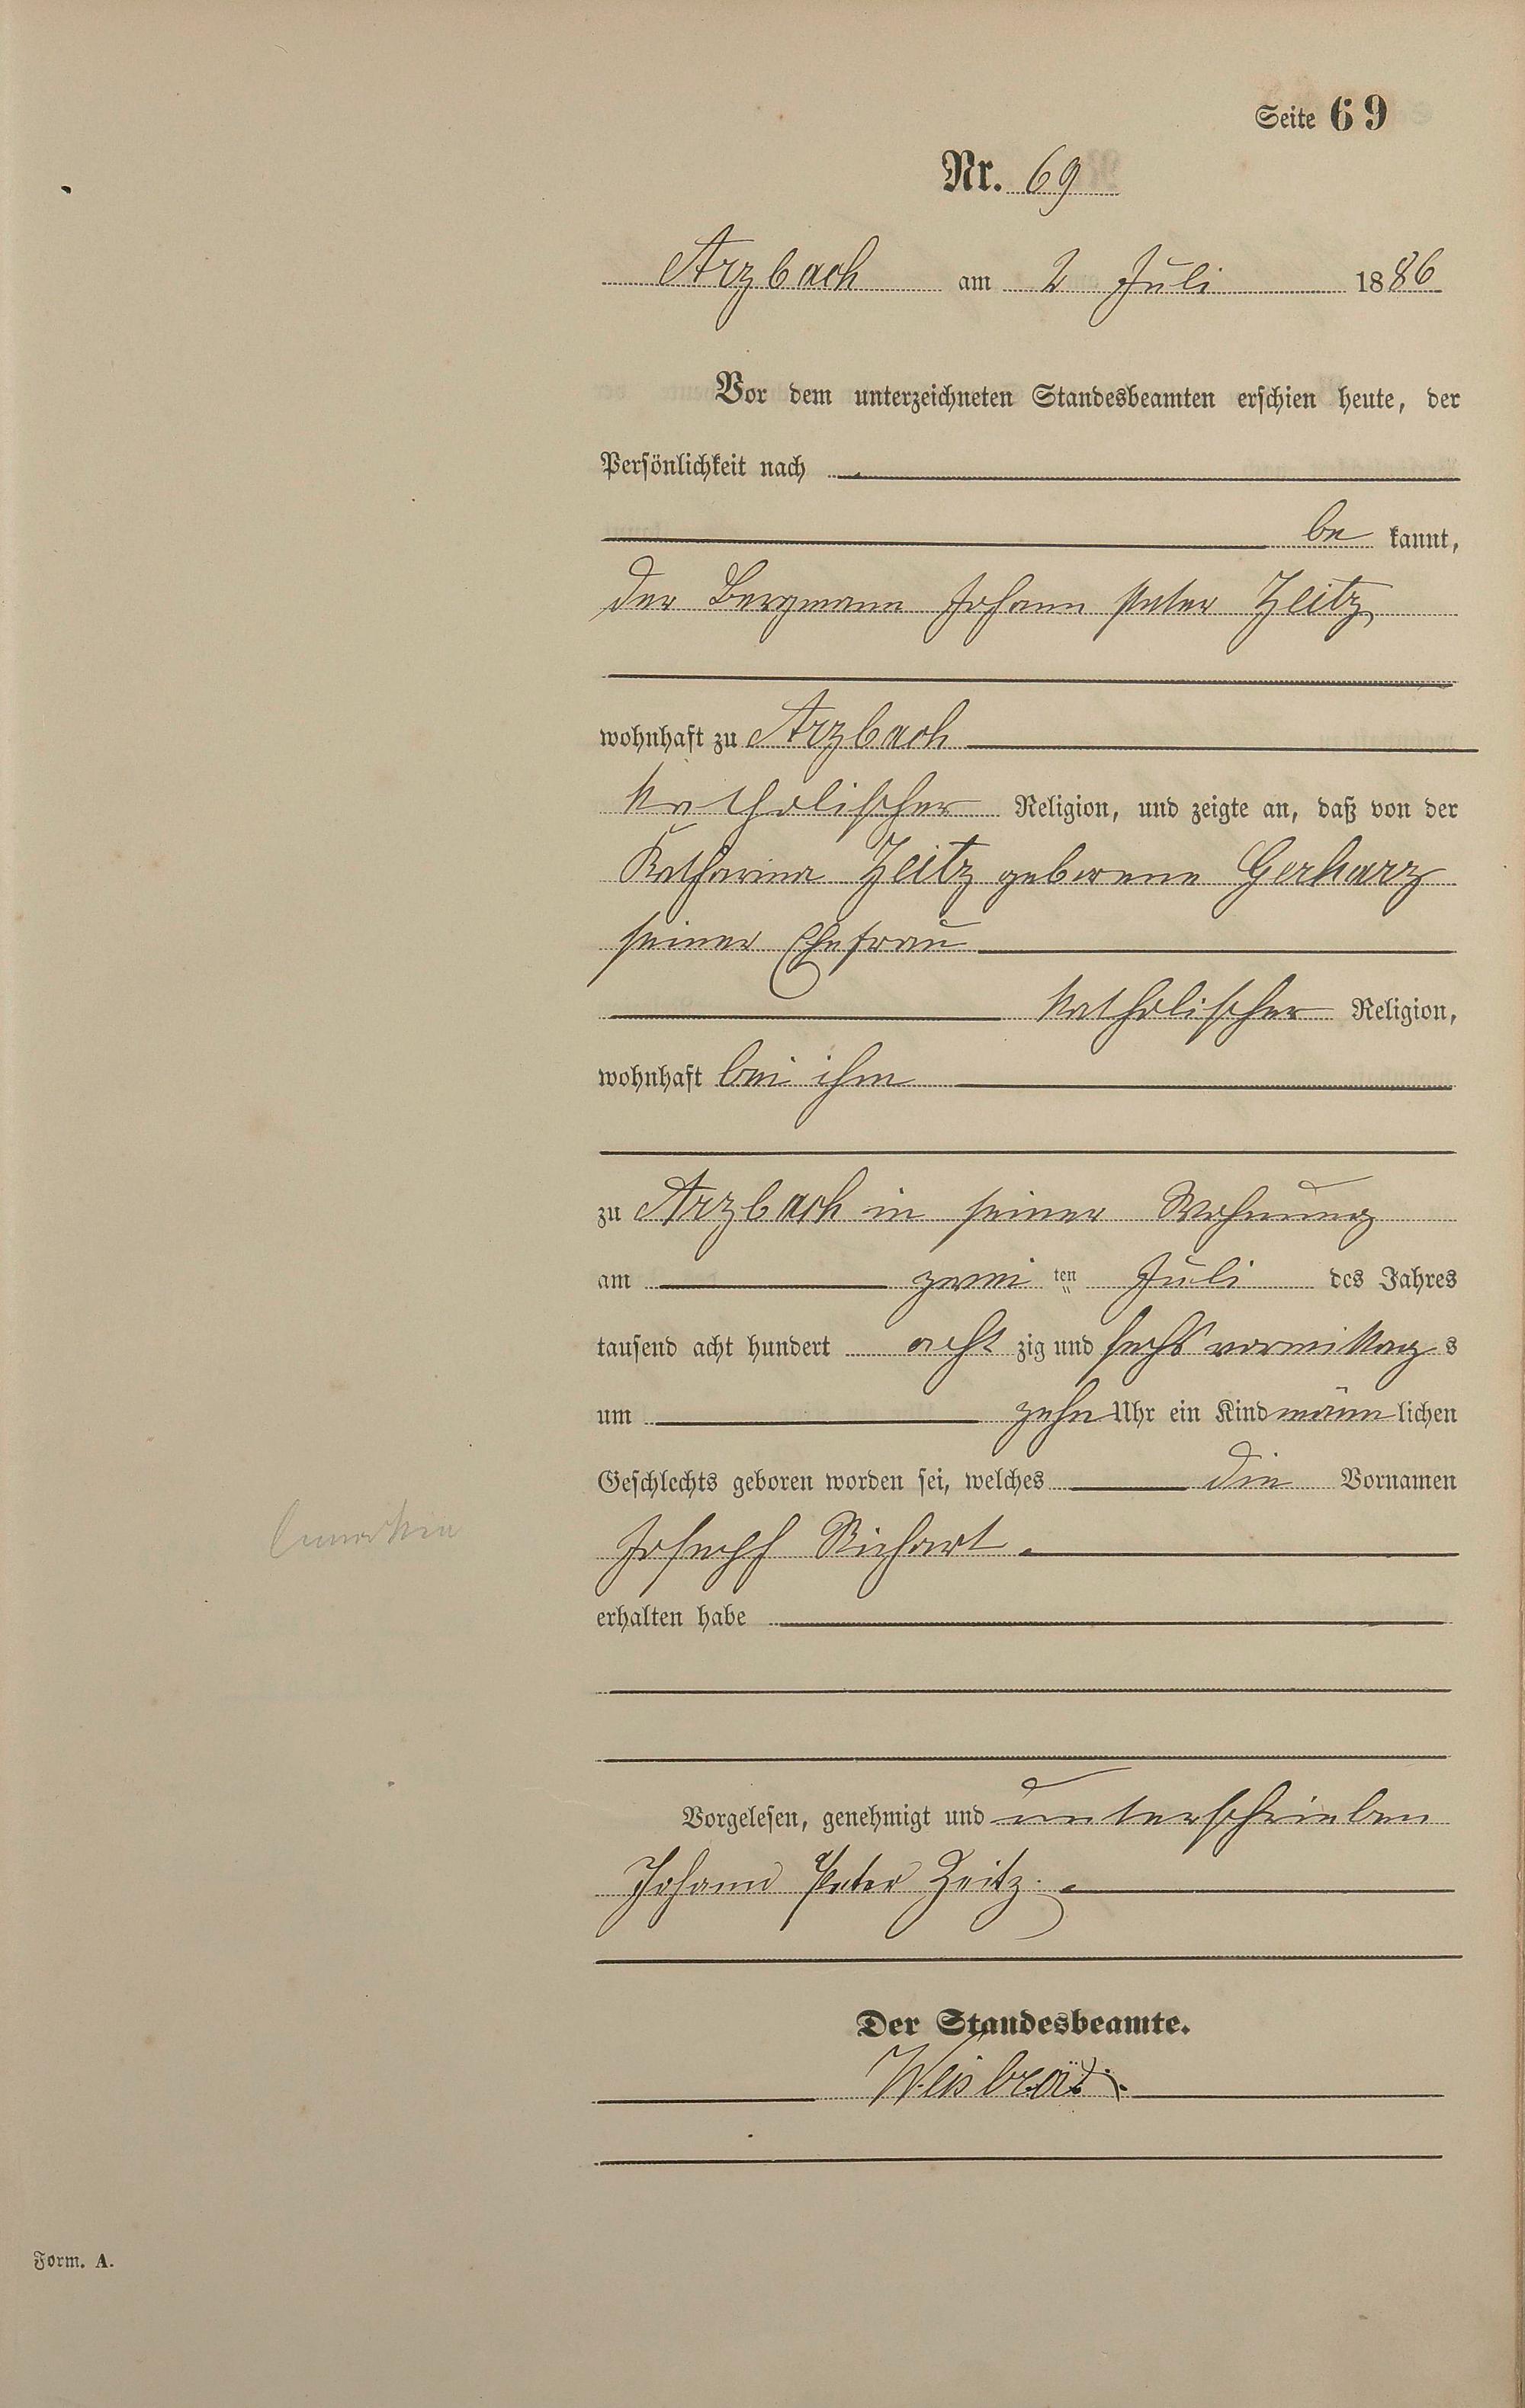 Seite 69
Nr. 69
Arzbach am 2 Juli 1886
Vor dem unterzeichneten Standesbeamten erschien heute, der
Persönlichkeit nach
be kannt,
der Bergmann Johann Peter Zeitz
wohnhaft zu Arzbach
katholischer Religion, und zeigte an, daß von der
Katharina Zeitz geborene Gerharz
seiner Ehefrau
katholischer Religion,
wohnhaft bei ihm
zu Arzbach in seiner Wohnung
am zwei ten Juli des Jahres
tausend acht hundert acht zig und sechs vormittag s
um zehn Uhr ein Kind männ lichen
Geschlechts geboren worden sei, welches die Vornamen
Joseph Richart
erhalten habe
Vorgelesen, genehmigt und unterschrieben
Johann Peter Zeitz.
Der Standesbeamte.
Weisbrod.
Form. A.